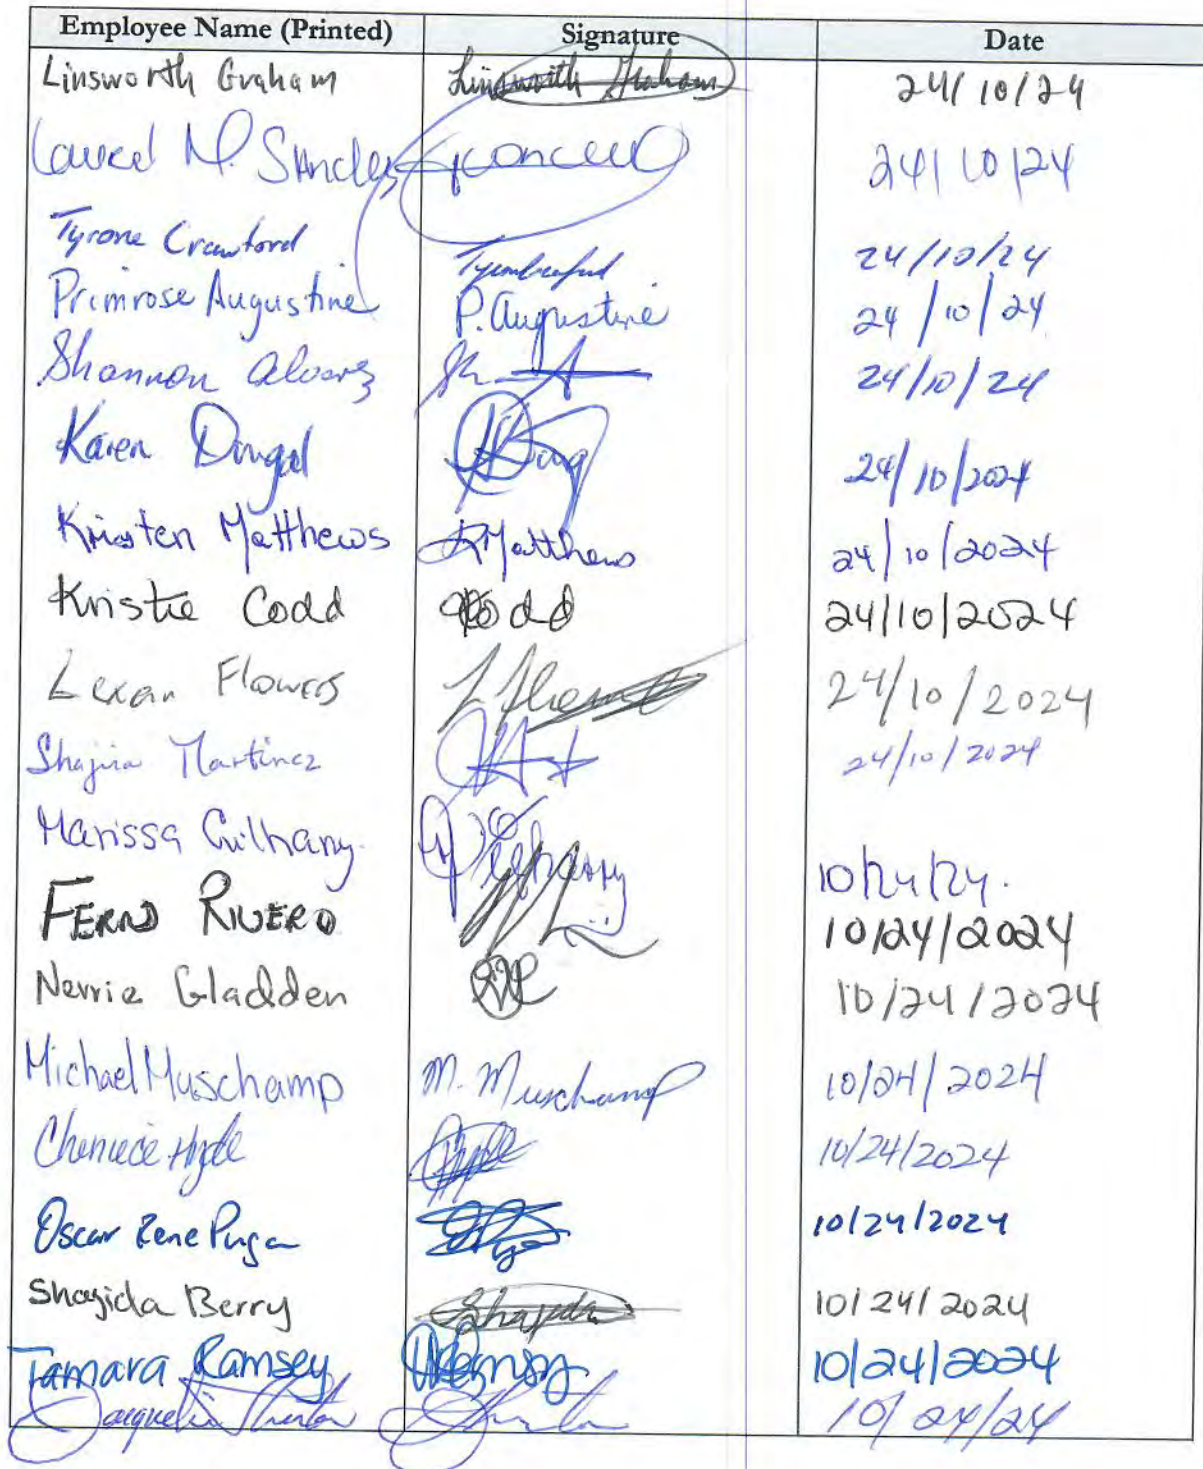 Employee Name (Printed) Signature Date
Linsworth Graham Linsworth Graham 24/10/24
M. 24/10/24
Tyrone Crawford 24/10/24
Primrose Augustine P. Augustine 24/10/24
Shannon 24/10/24
Karen Dougal 24/10/2024
Kristen Matthews KMatthews 24/10/2024
Kristie Codd Codd 24/10/2024
Lexan Flowers 24/10/2024
Martinez 24/10/2024
Marissa Gilharry 10/24/24.
RIVERO 10/24/2024
Nerrie Gladden 10/24/2024
Michael Muschamp M. Muschamp 10/24/2024
Hyde 10/24/2024
Oscar Rene Puga 10/24/2024
Shajida Berry Shajida 10/24/2024
Tamara Ramsey 10/24/2024
10/24/24